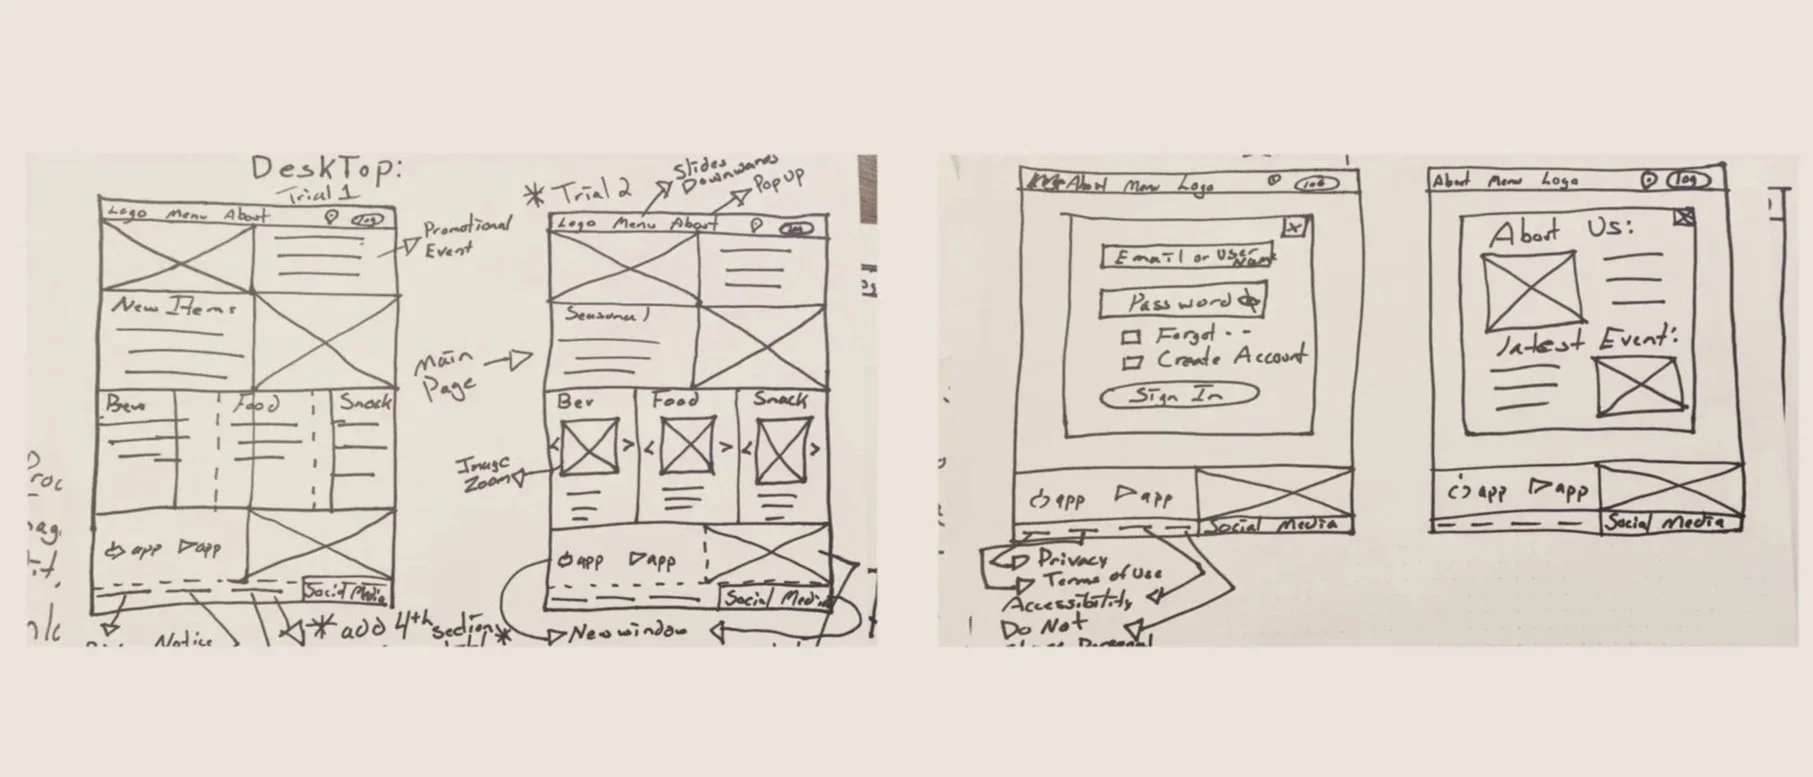 DeskTop:
Trial 1
Logo Menu About log
Promotional
Event
New Items
Bev Food Snack
app app
Social Media
Notice
* add 4th section *
Main
Page
* Trial 2
Slides
Downwards
Pop Up
Logo Menu About log
Seasonal
Bev Food Snack
< > < > < >
Image
Zoom
app app
Social Media
New window
About Menu Logo log
X
Email or User
Name
Password
Forgot - -
Create Account
Sign In
app app
Social Media
Privacy
Terms of Use
Accessibility
Do Not
About Menu Logo log
X
About Us:
latest Event:
app app
Social Media